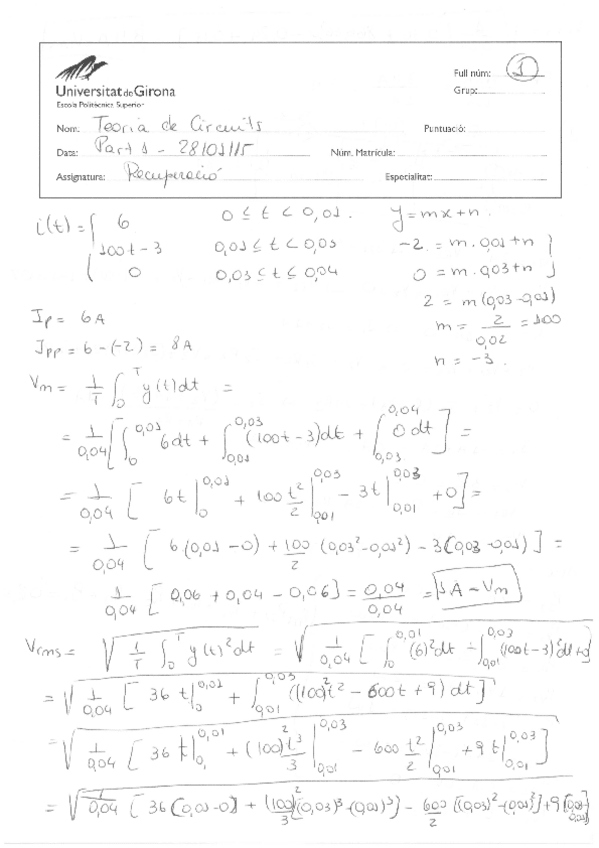 Universitat de Girona
Escola Politècnica Superior
Full núm: 1
Grup:
Nom: Teoria de Circuits
Puntuació:
Data: Part 1 - 28/01/15
Núm. Matrícula:
Assignatura: Recuperació
Especialitat:
i(t) = { 6 0 ≤ t < 0,01.
100t - 3 0,01 ≤ t < 0,03
0 0,03 ≤ t ≤ 0,04
y = mx + n.
-2 = m·0,01 + n }
0 = m·0,03 + n
2 = m(0,03 - 0,01)
m = 2/0,02 = 100
n = -3.
Ip = 6A
Ipp = 6 - (-2) = 8A
Vm = 1/T ∫₀ᵀ y(t)dt =
= 1/0,04 [ ∫_0^0,01 6dt + ∫_0,01^0,03 (100t - 3)dt + ∫_0,03^0,04 0 dt ] =
= 1/0,04 [ 6t |_0^0,01 + 100 t²/2 |_0,01^0,03 - 3t |_0,01^0,03 + 0 ] =
= 1/0,04 [ 6(0,01 - 0) + 100/2 (0,03² - 0,01²) - 3(0,03 - 0,01) ] =
1/0,04 [ 0,06 + 0,04 - 0,06 ] = 0,04/0,04 = 1A - Vm
Vrms = √( 1/T ∫₀ᵀ y(t)² dt ) = √( 1/0,04 [ ∫_0^0,01 (6)² dt + ∫_0,01^0,03 (100t - 3)² dt + 0 ]
= √( 1/0,04 [ 36 t |_0^0,01 + ∫_0,01^0,03 ((100)² t² - 600t + 9) dt ] )
= √( 1/0,04 [ 36 t |_0^0,01 + (100)² t³/3 |_0,01^0,03 - 600 t²/2 |_0,01^0,03 + 9 t |_0,01^0,03 ] )
= √( 1/0,04 [ 36(0,01 - 0) + (100)²/3 ((0,03)³ - (0,01)³) - 600/2 [(0,03)² - (0,01)²] + 9 [0,03 - 0,01]